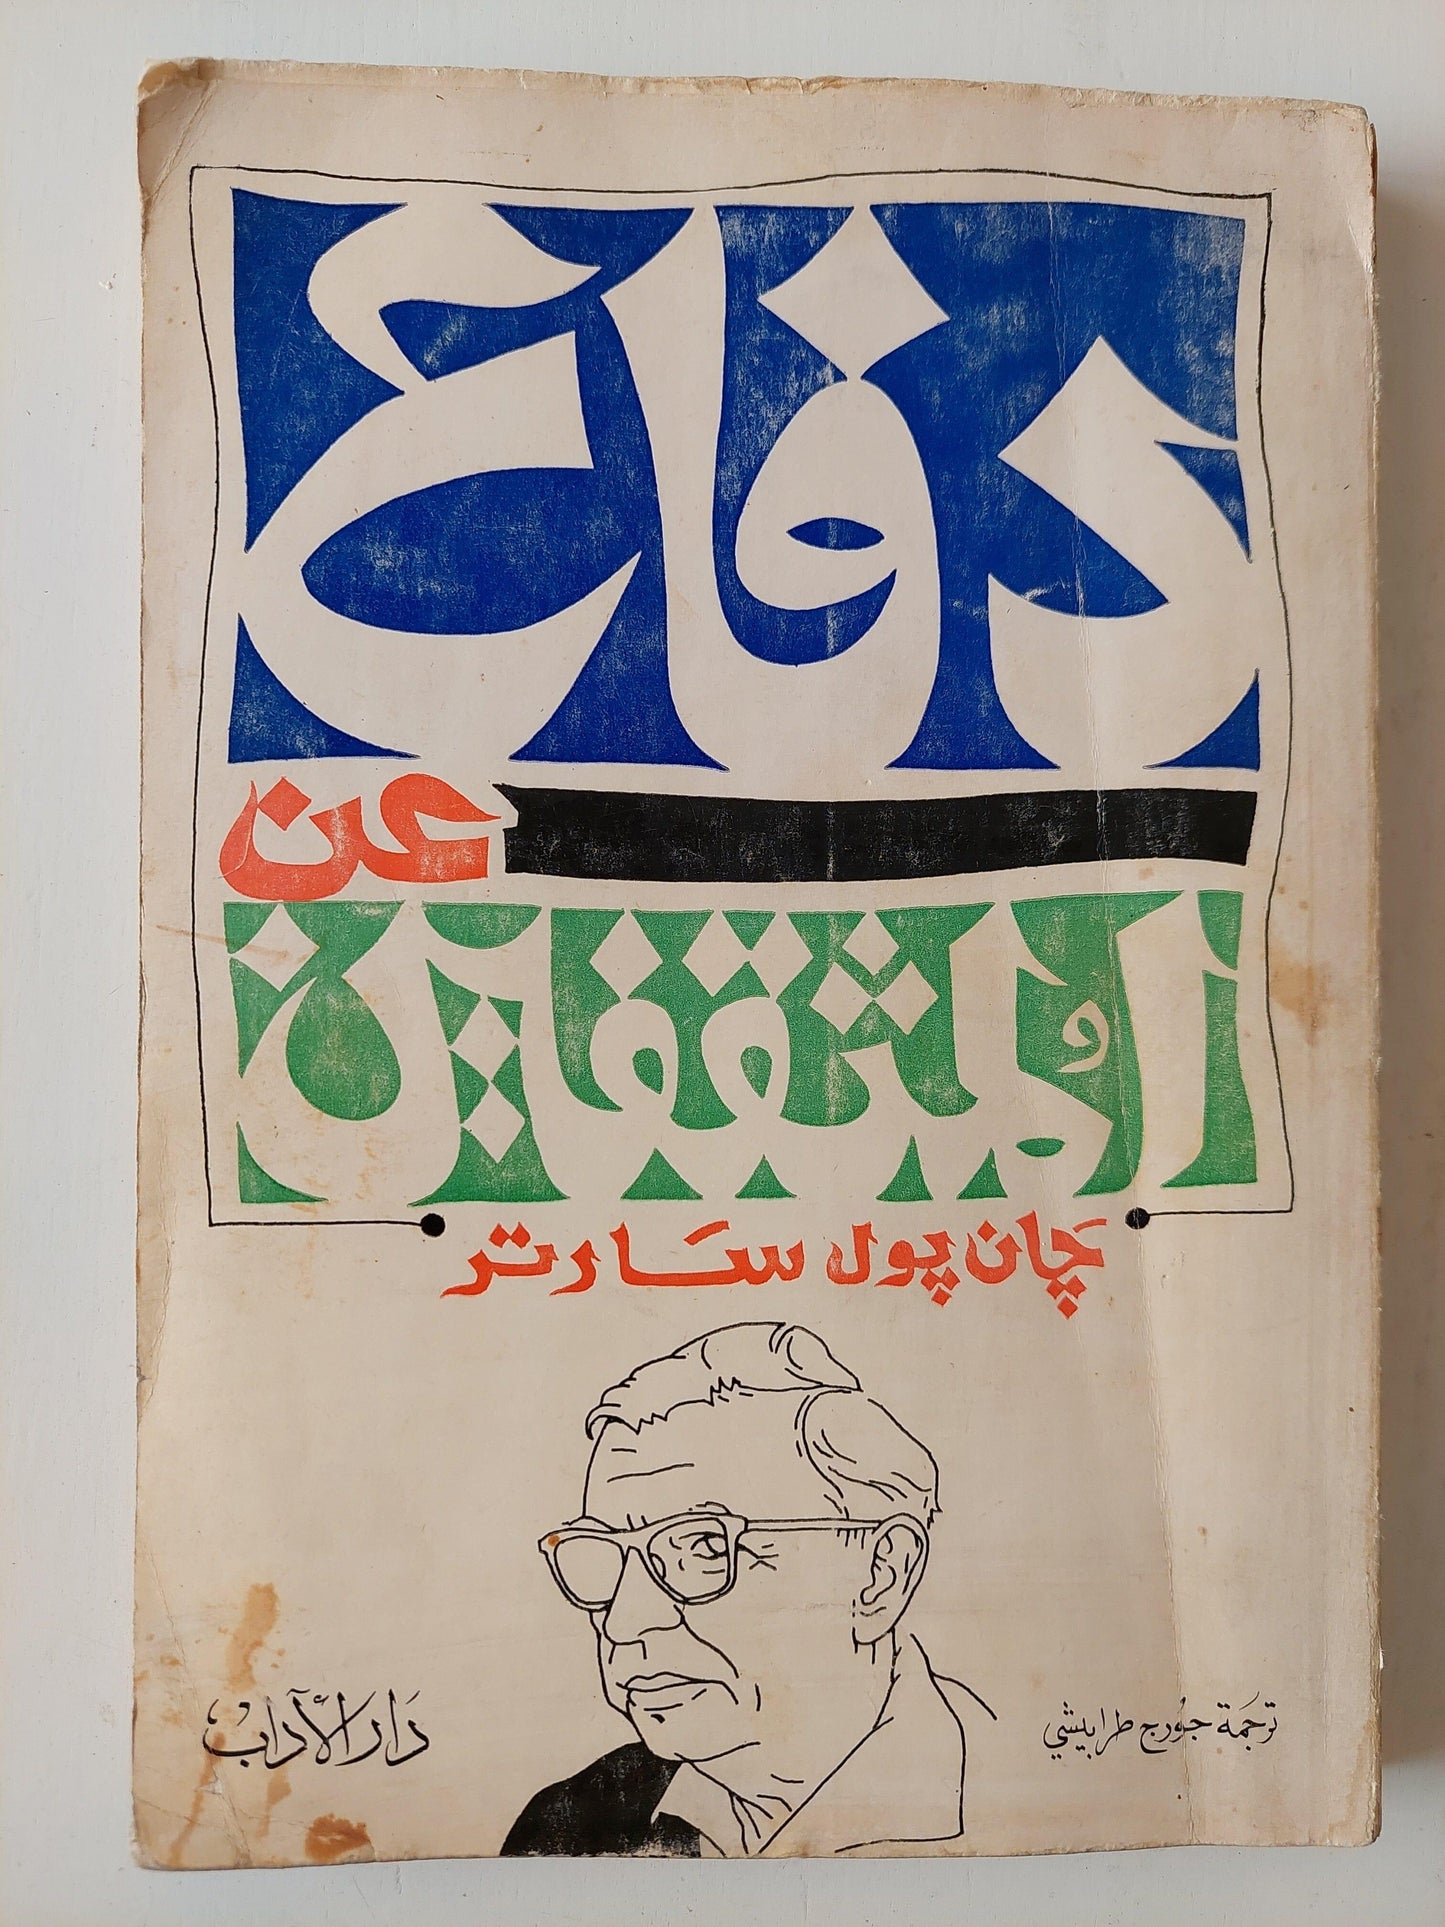 دفاع
عن
المُثقفين
چان پول سارتر
ترجمة جورج طرابيشي
دار الآداب